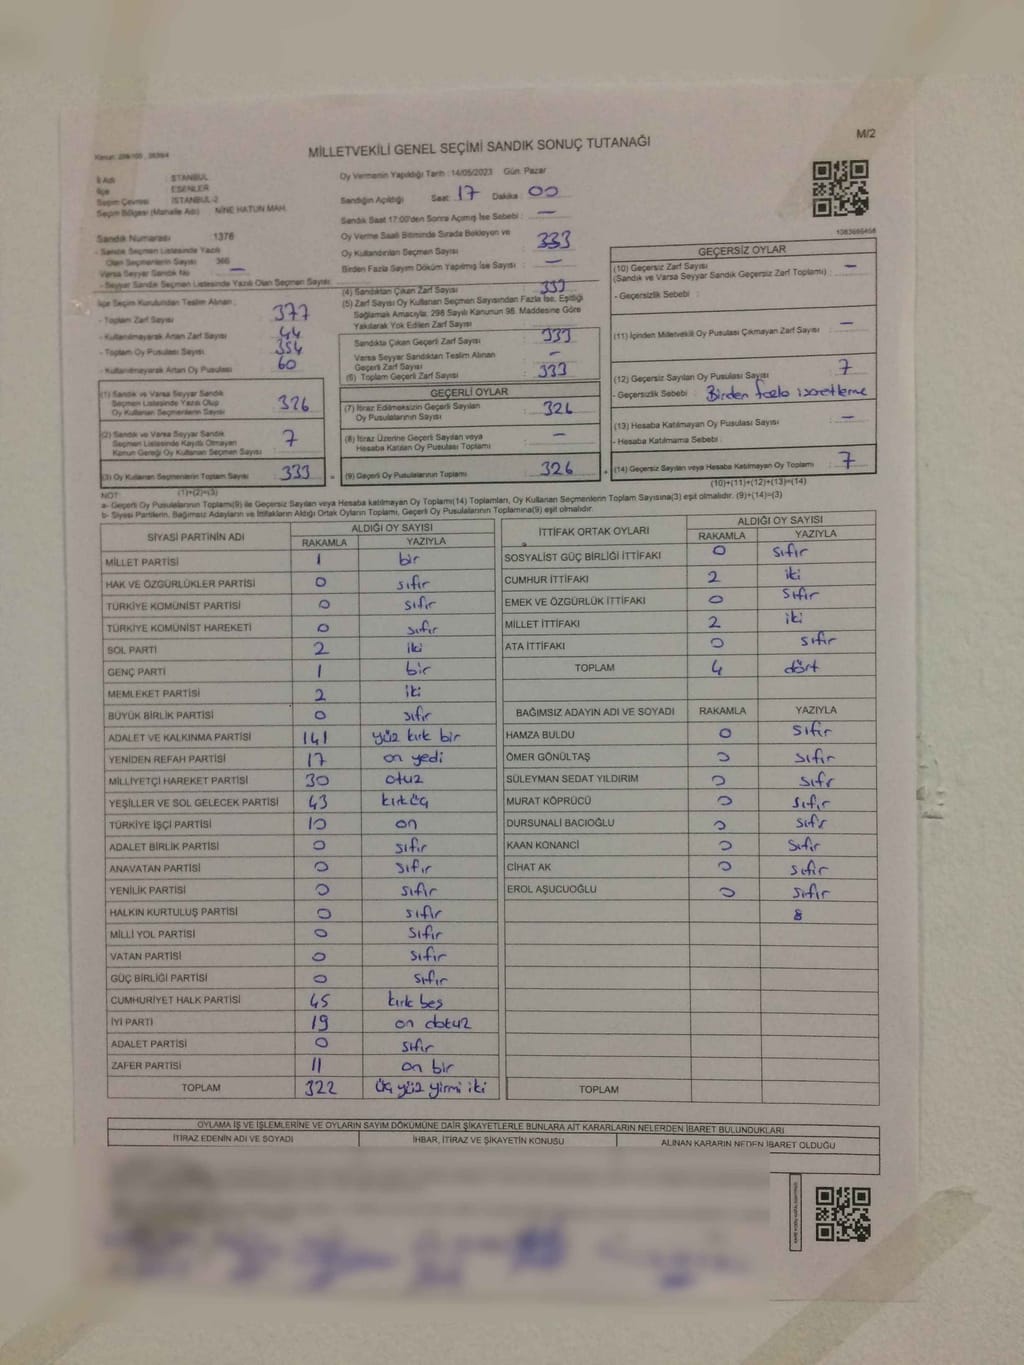 M/2
MİLLETVEKİLİ GENEL SEÇİMİ SANDIK SONUÇ TUTANAĞI
İl Adı : İSTANBUL
İlçe : ESENLER
Seçim Çevresi : İSTANBUL-2
Seçim Bölgesi (Mahalle Adı) : NİNE HATUN MAH.
Oy Vermenin Yapıldığı Tarih : 14/05/2023 Gün: Pazar
Sandığın Açıldığı Saat: 17 Dakika : 00
Sandık Saat 17:00'den Sonra Açılmış İse Sebebi : —
Sandık Numarası : 1376
- Sandık Seçmen Listesinde Yazılı
Olan Seçmenlerin Sayısı : 366
Varsa Seyyar Sandık No : —
- Seyyar Sandık Seçmen Listesinde Yazılı Olan Seçmen Sayısı :
Oy Verme Saati Bitiminde Sırada Bekleyen ve
Oy Kullandırılan Seçmen Sayısı : 333
Birden Fazla Sayım Döküm Yapılmış İse Sayısı : —
İlçe Seçim Kurulundan Teslim Alınan :
- Toplam Zarf Sayısı 377
- Kullanılmayarak Artan Zarf Sayısı 44
- Toplam Oy Pusulası Sayısı
- Kullanılmayarak Artan Oy Pusulası 60
(4) Sandıktan Çıkan Zarf Sayısı 333
(5) Zarf Sayısı Oy Kullanan Seçmen Sayısından Fazla İse, Eşitliği
Sağlamak Amacıyla, 298 Sayılı Kanunun 98. Maddesine Göre
Yakılarak Yok Edilen Zarf Sayısı
Sandıkta Çıkan Geçerli Zarf Sayısı 333
Varsa Seyyar Sandıktan Teslim Alınan
Geçerli Zarf Sayısı —
(6) Toplam Geçerli Zarf Sayısı 333
(1) Sandık ve Varsa Seyyar Sandık
Seçmen Listesinde Yazılı Olup
Oy Kullanan Seçmenlerin Sayısı 326
(2) Sandık ve Varsa Seyyar Sandık
Seçmen Listesinde Kayıtlı Olmayan
Kanun Gereği Oy Kullanan Seçmen Sayısı 7
(3) Oy Kullanan Seçmenlerin Toplam Sayısı 333
(1)+(2)=(3)
GEÇERLİ OYLAR
(7) İtiraz Edilmeksizin Geçerli Sayılan
Oy Pusulalarının Sayısı 326
(8) İtiraz Üzerine Geçerli Sayılan veya
Hesaba Katılan Oy Pusulası Toplamı —
(9) Geçerli Oy Pusulalarının Toplamı 326
GEÇERSİZ OYLAR
(10) Geçersiz Zarf Sayısı
(Sandık ve Varsa Seyyar Sandık Geçersiz Zarf Toplamı) : —
- Geçersizlik Sebebi :
(11) İçinden Milletvekili Oy Pusulası Çıkmayan Zarf Sayısı : —
(12) Geçersiz Sayılan Oy Pusulası Sayısı 7
- Geçersizlik Sebebi : Birden fazla isaretleme
(13) Hesaba Katılmayan Oy Pusulası Sayısı : —
- Hesaba Katılmama Sebebi :
(14) Geçersiz Sayılan veya Hesaba Katılmayan Oy Toplamı : 7
(10)+(11)+(12)+(13)=(14)
NOT:
a- Geçerli Oy Pusulalarının Toplamı(9) ile Geçersiz Sayılan veya Hesaba katılmayan Oy Toplamı(14) Toplamları, Oy Kullanan Seçmenlerin Toplam Sayısına(3) eşit olmalıdır. (9)+(14)=(3)
b- Siyasi Partilerin, Bağımsız Adayların ve İttifakların Aldığı Ortak Oyların Toplamı, Geçerli Oy Pusulalarının Toplamına(9) eşit olmalıdır.
SİYASİ PARTİNİN ADI ALDIĞI OY SAYISI
RAKAMLA YAZIYLA
MİLLET PARTİSİ 1 bir
HAK VE ÖZGÜRLÜKLER PARTİSİ 0 sıfır
TÜRKİYE KOMÜNİST PARTİSİ 0 sıfır
TÜRKİYE KOMÜNİST HAREKETİ 0 sıfır
SOL PARTİ 2 iki
GENÇ PARTİ 1 bir
MEMLEKET PARTİSİ 2 iki
BÜYÜK BİRLİK PARTİSİ 0 sıfır
ADALET VE KALKINMA PARTİSİ 141 yüz kırk bir
YENİDEN REFAH PARTİSİ 17 on yedi
MİLLİYETÇİ HAREKET PARTİSİ 30 otuz
YEŞİLLER VE SOL GELECEK PARTİSİ 43 kırküç
TÜRKİYE İŞÇİ PARTİSİ 10 on
ADALET BİRLİK PARTİSİ 0 sıfır
ANAVATAN PARTİSİ 0 sıfır
YENİLİK PARTİSİ 0 sıfır
HALKIN KURTULUŞ PARTİSİ 0 sıfır
MİLLİ YOL PARTİSİ 0 sıfır
VATAN PARTİSİ 0 sıfır
GÜÇ BİRLİĞİ PARTİSİ 0 sıfır
CUMHURİYET HALK PARTİSİ 45 kırk beş
İYİ PARTİ 19 on dokuz
ADALET PARTİSİ 0 sıfır
ZAFER PARTİSİ 11 on bir
TOPLAM 322 üç yüz yirmi iki
İTTİFAK ORTAK OYLARI ALDIĞI OY SAYISI
RAKAMLA YAZIYLA
SOSYALİST GÜÇ BİRLİĞİ İTTİFAKI 0 sıfır
CUMHUR İTTİFAKI 2 iki
EMEK VE ÖZGÜRLÜK İTTİFAKI 0 sıfır
MİLLET İTTİFAKI 2 iki
ATA İTTİFAKI 0 sıfır
TOPLAM 4 dört
BAĞIMSIZ ADAYIN ADI VE SOYADI RAKAMLA YAZIYLA
HAMZA BULDU 0 sıfır
ÖMER GÖNÜLTAŞ 0 sıfır
SÜLEYMAN SEDAT YILDIRIM 0 sıfır
MURAT KÖPRÜCÜ 0 sıfır
DURSUNALİ BACIOĞLU 0 sıfır
KAAN KONANCİ 0 sıfır
CİHAT AK 0 sıfır
EROL AŞUCUOĞLU 0 sıfır
8
TOPLAM
OYLAMA İŞ VE İŞLEMLERİNE VE OYLARIN SAYIM DÖKÜMÜNE DAİR ŞİKAYETLERLE BUNLARA AİT KARARLARIN NELERDEN İBARET BULUNDUKLARI
İTİRAZ EDENİN ADI VE SOYADI İHBAR, İTİRAZ VE ŞİKAYETİN KONUSU ALINAN KARARIN NEDEN İBARET OLDUĞU